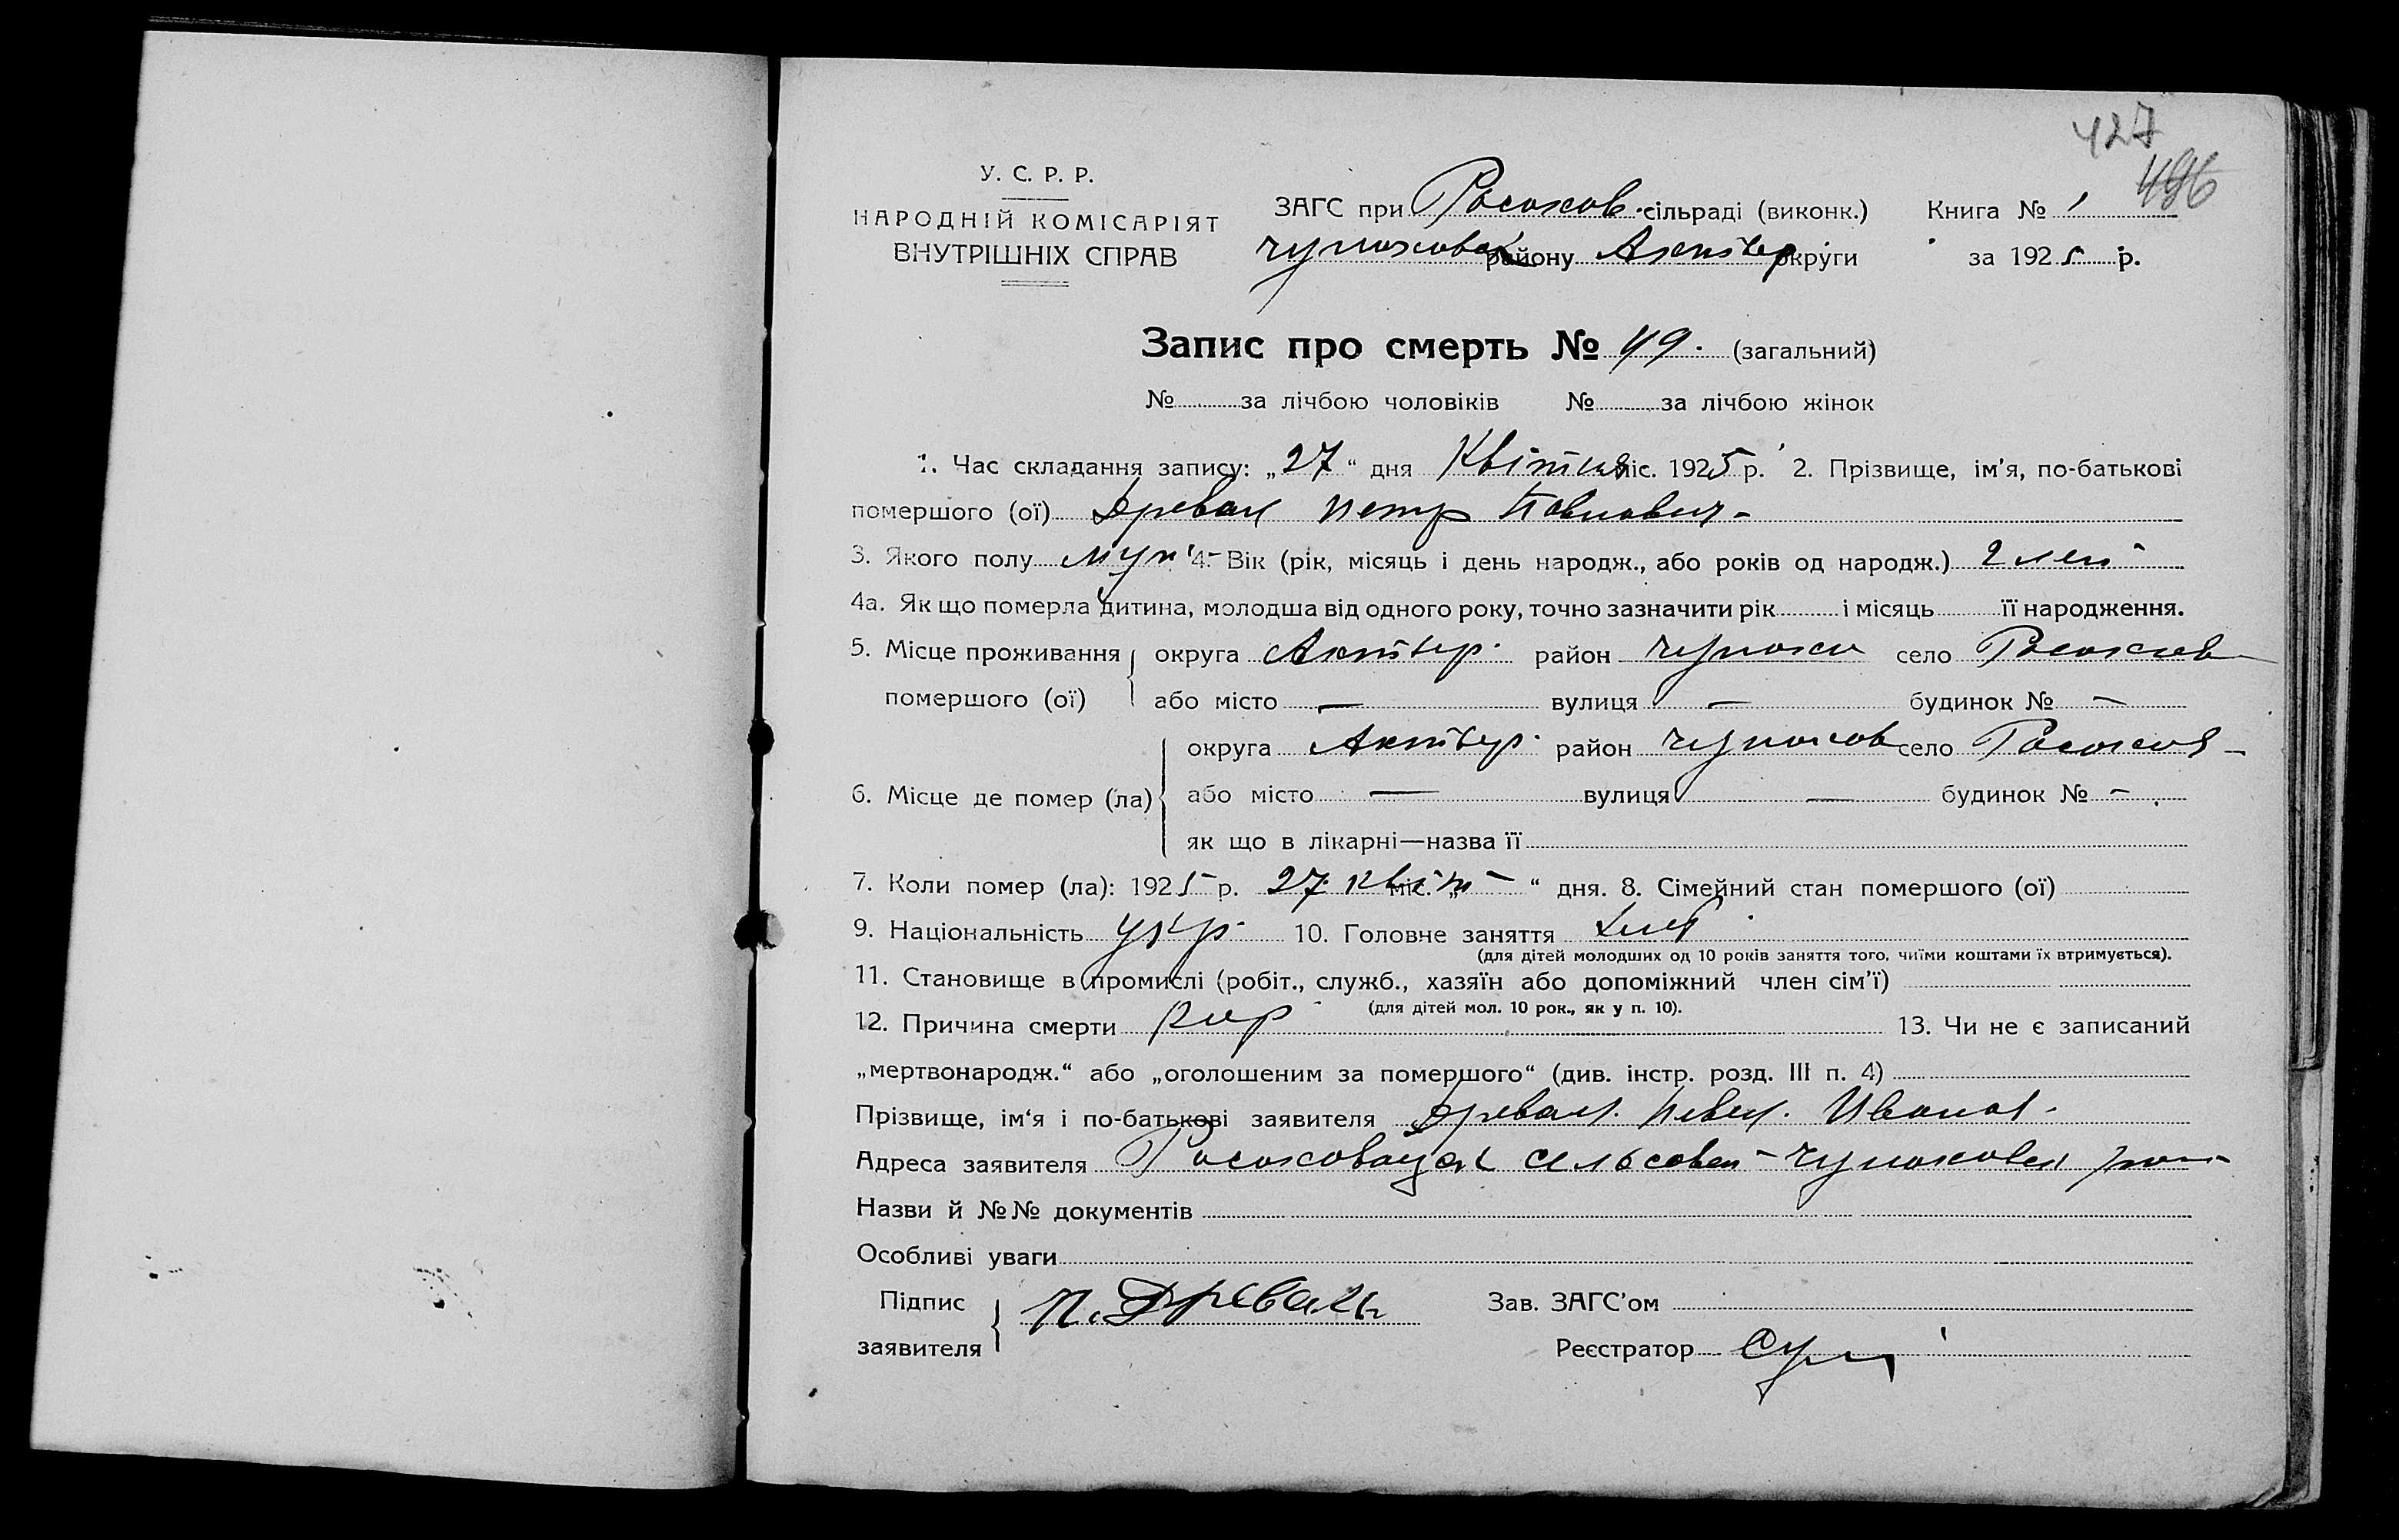 427
496
У. С. Р. Р.
НАРОДНІЙ КОМІСАРІЯТ
ВНУТРІШНІХ СПРАВ
ЗАГС при Росохов. сільраді (виконк.) Книга № 1
району округи за 1925 р.
Запис про смерть № 49. (загальний)
№ за лічбою чоловіків № за лічбою жінок
1. Час складання запису: „27“ дня Квітня міс. 1925 р. 2. Прізвище, ім'я, по-батькові
помершого (ої) Древаль Петр Павлович
3. Якого полу муж 4. Вік (рік, місяць і день народж., або років од народж.) 2 лет
4а. Як що померла дитина, молодша від одного року, точно зазначити рік і місяць її народження.
5. Місце проживання округа район село
помершого (ої) або місто — вулиця — будинок № —
округа район село
6. Місце де помер (ла) або місто — вулиця — будинок № —
як що в лікарні—назва її
7. Коли помер (ла): 1925 р. 27 квіт міс. „ “ дня. 8. Сімейний стан помершого (ої)
9. Національність укр. 10. Головне заняття хліб
(для дітей молодших од 10 років заняття того, чиїми коштами їх втримується).
11. Становище в промислі (робіт., служб., хазяїн або допоміжний член сім'ї)
(для дітей мол. 10 рок., як у п. 10).
12. Причина смерти кор 13. Чи не є записаний
„мертвонародж.“ або „оголошеним за помершого“ (див. інстр. розд. III п. 4)
Прізвище, ім'я і по-батькові заявителя Древаль Павел Иванов.
Адреса заявителя сельсовет
Назви й №№ документів
Особливі уваги
Підпис П. Древаль Зав. ЗАГС'ом
заявителя Реєстратор